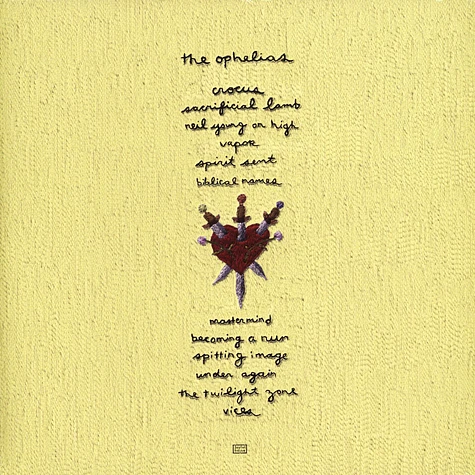 the ophelias
crocus
sacrificial lamb
neil young on high
vapor
spirit sent
biblical names
mastermind
becoming a nun
spitting image
under again
the twilight zone
vices